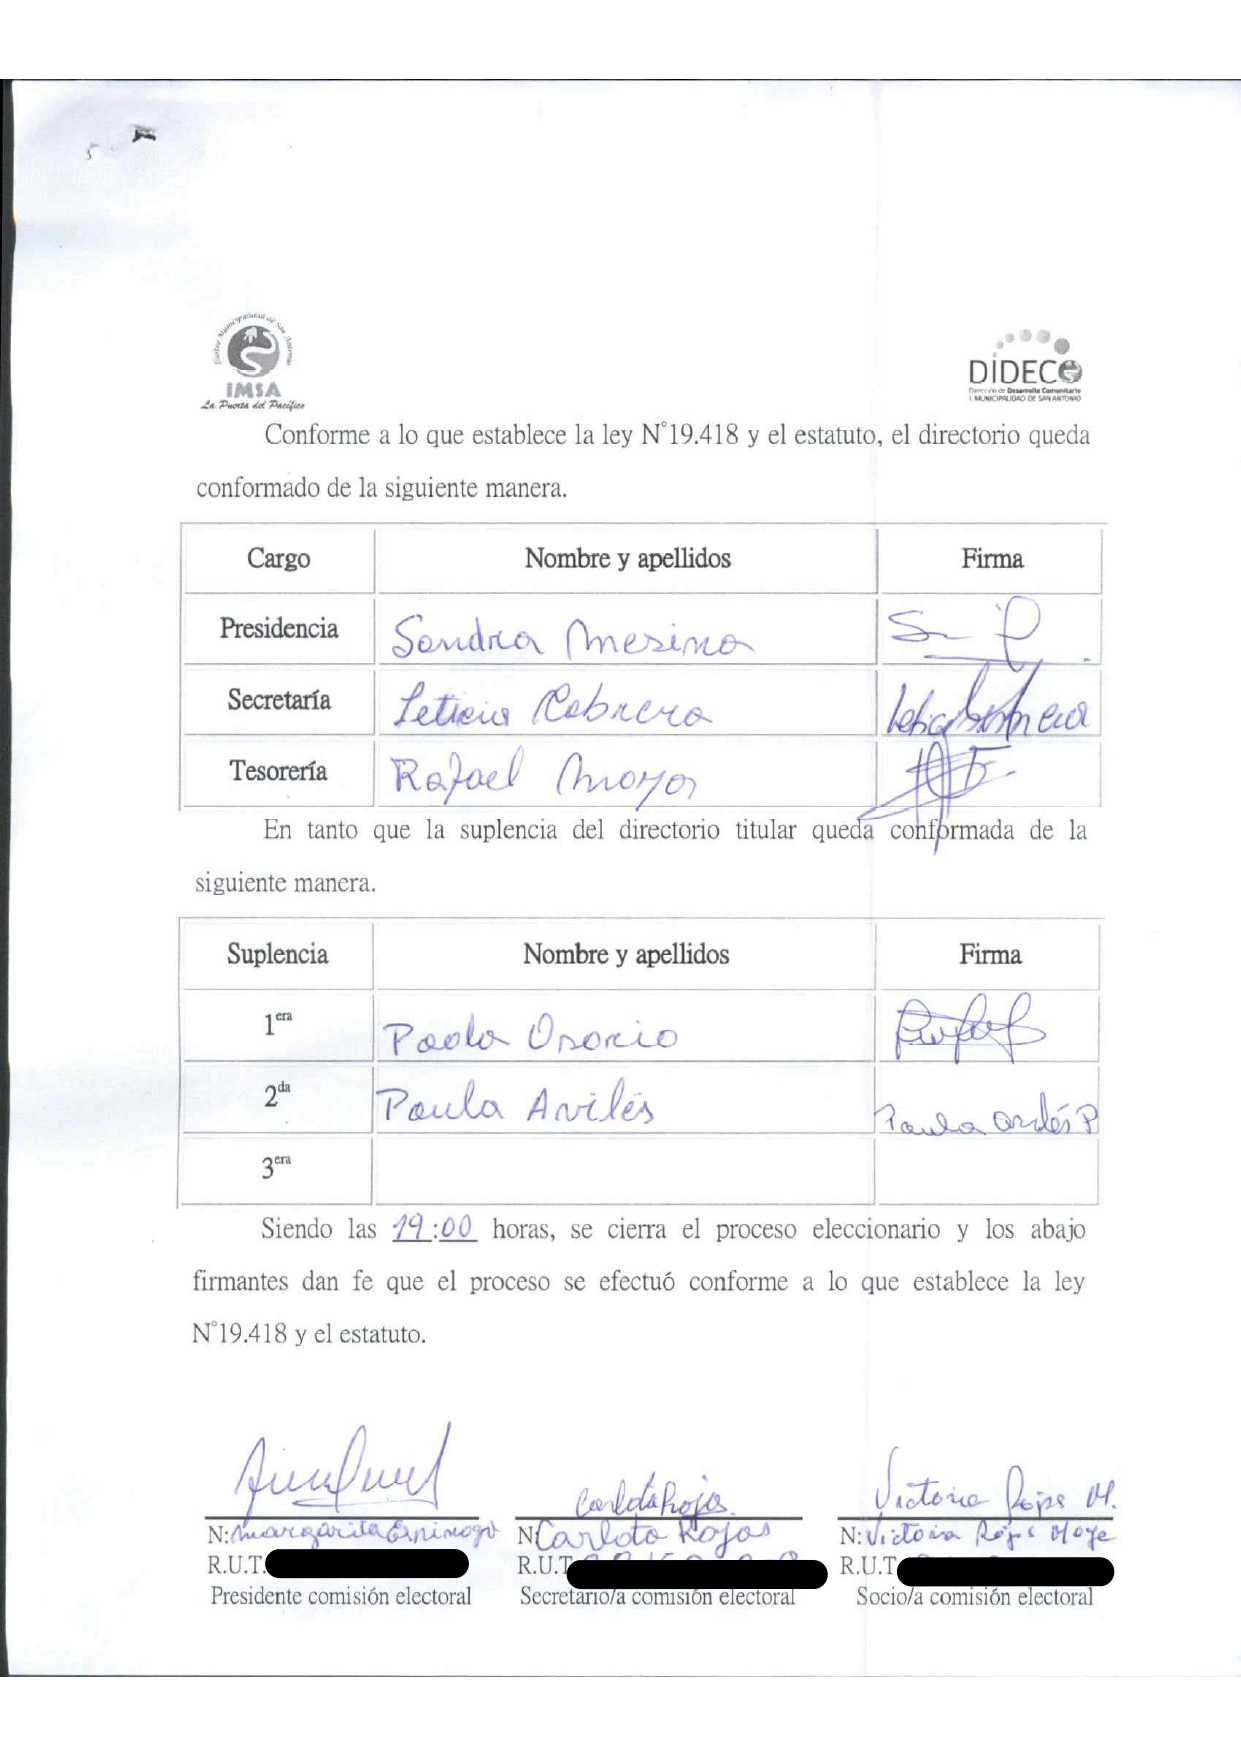 Ilustre Municipalidad de San Antonio
IMSA
La Puerta del Pacífico
DIDECO
Dirección de Desarrollo Comunitario
I. MUNICIPALIDAD DE SAN ANTONIO
Conforme a lo que establece la ley N°19.418 y el estatuto, el directorio queda
conformado de la siguiente manera.
Cargo Nombre y apellidos Firma
Presidencia Sandra Mesina
Secretaría Leticia Cabrera
Tesorería Rafael Moya
En tanto que la suplencia del directorio titular queda conformada de la
siguiente manera.
Suplencia Nombre y apellidos Firma
1era Paola Osorio
2da Paula Avilés Paula Avilés P
3era
Siendo las 19:00 horas, se cierra el proceso eleccionario y los abajo
firmantes dan fe que el proceso se efectuó conforme a lo que establece la ley
N°19.418 y el estatuto.
Carlota Rojas Victoria Rojas M.
N: Margarita N: Carlota Rojas N: Victoria Rojas Moya
R.U.T. R.U.T R.U.T
Presidente comisión electoral Secretario/a comisión electoral Socio/a comisión electoral